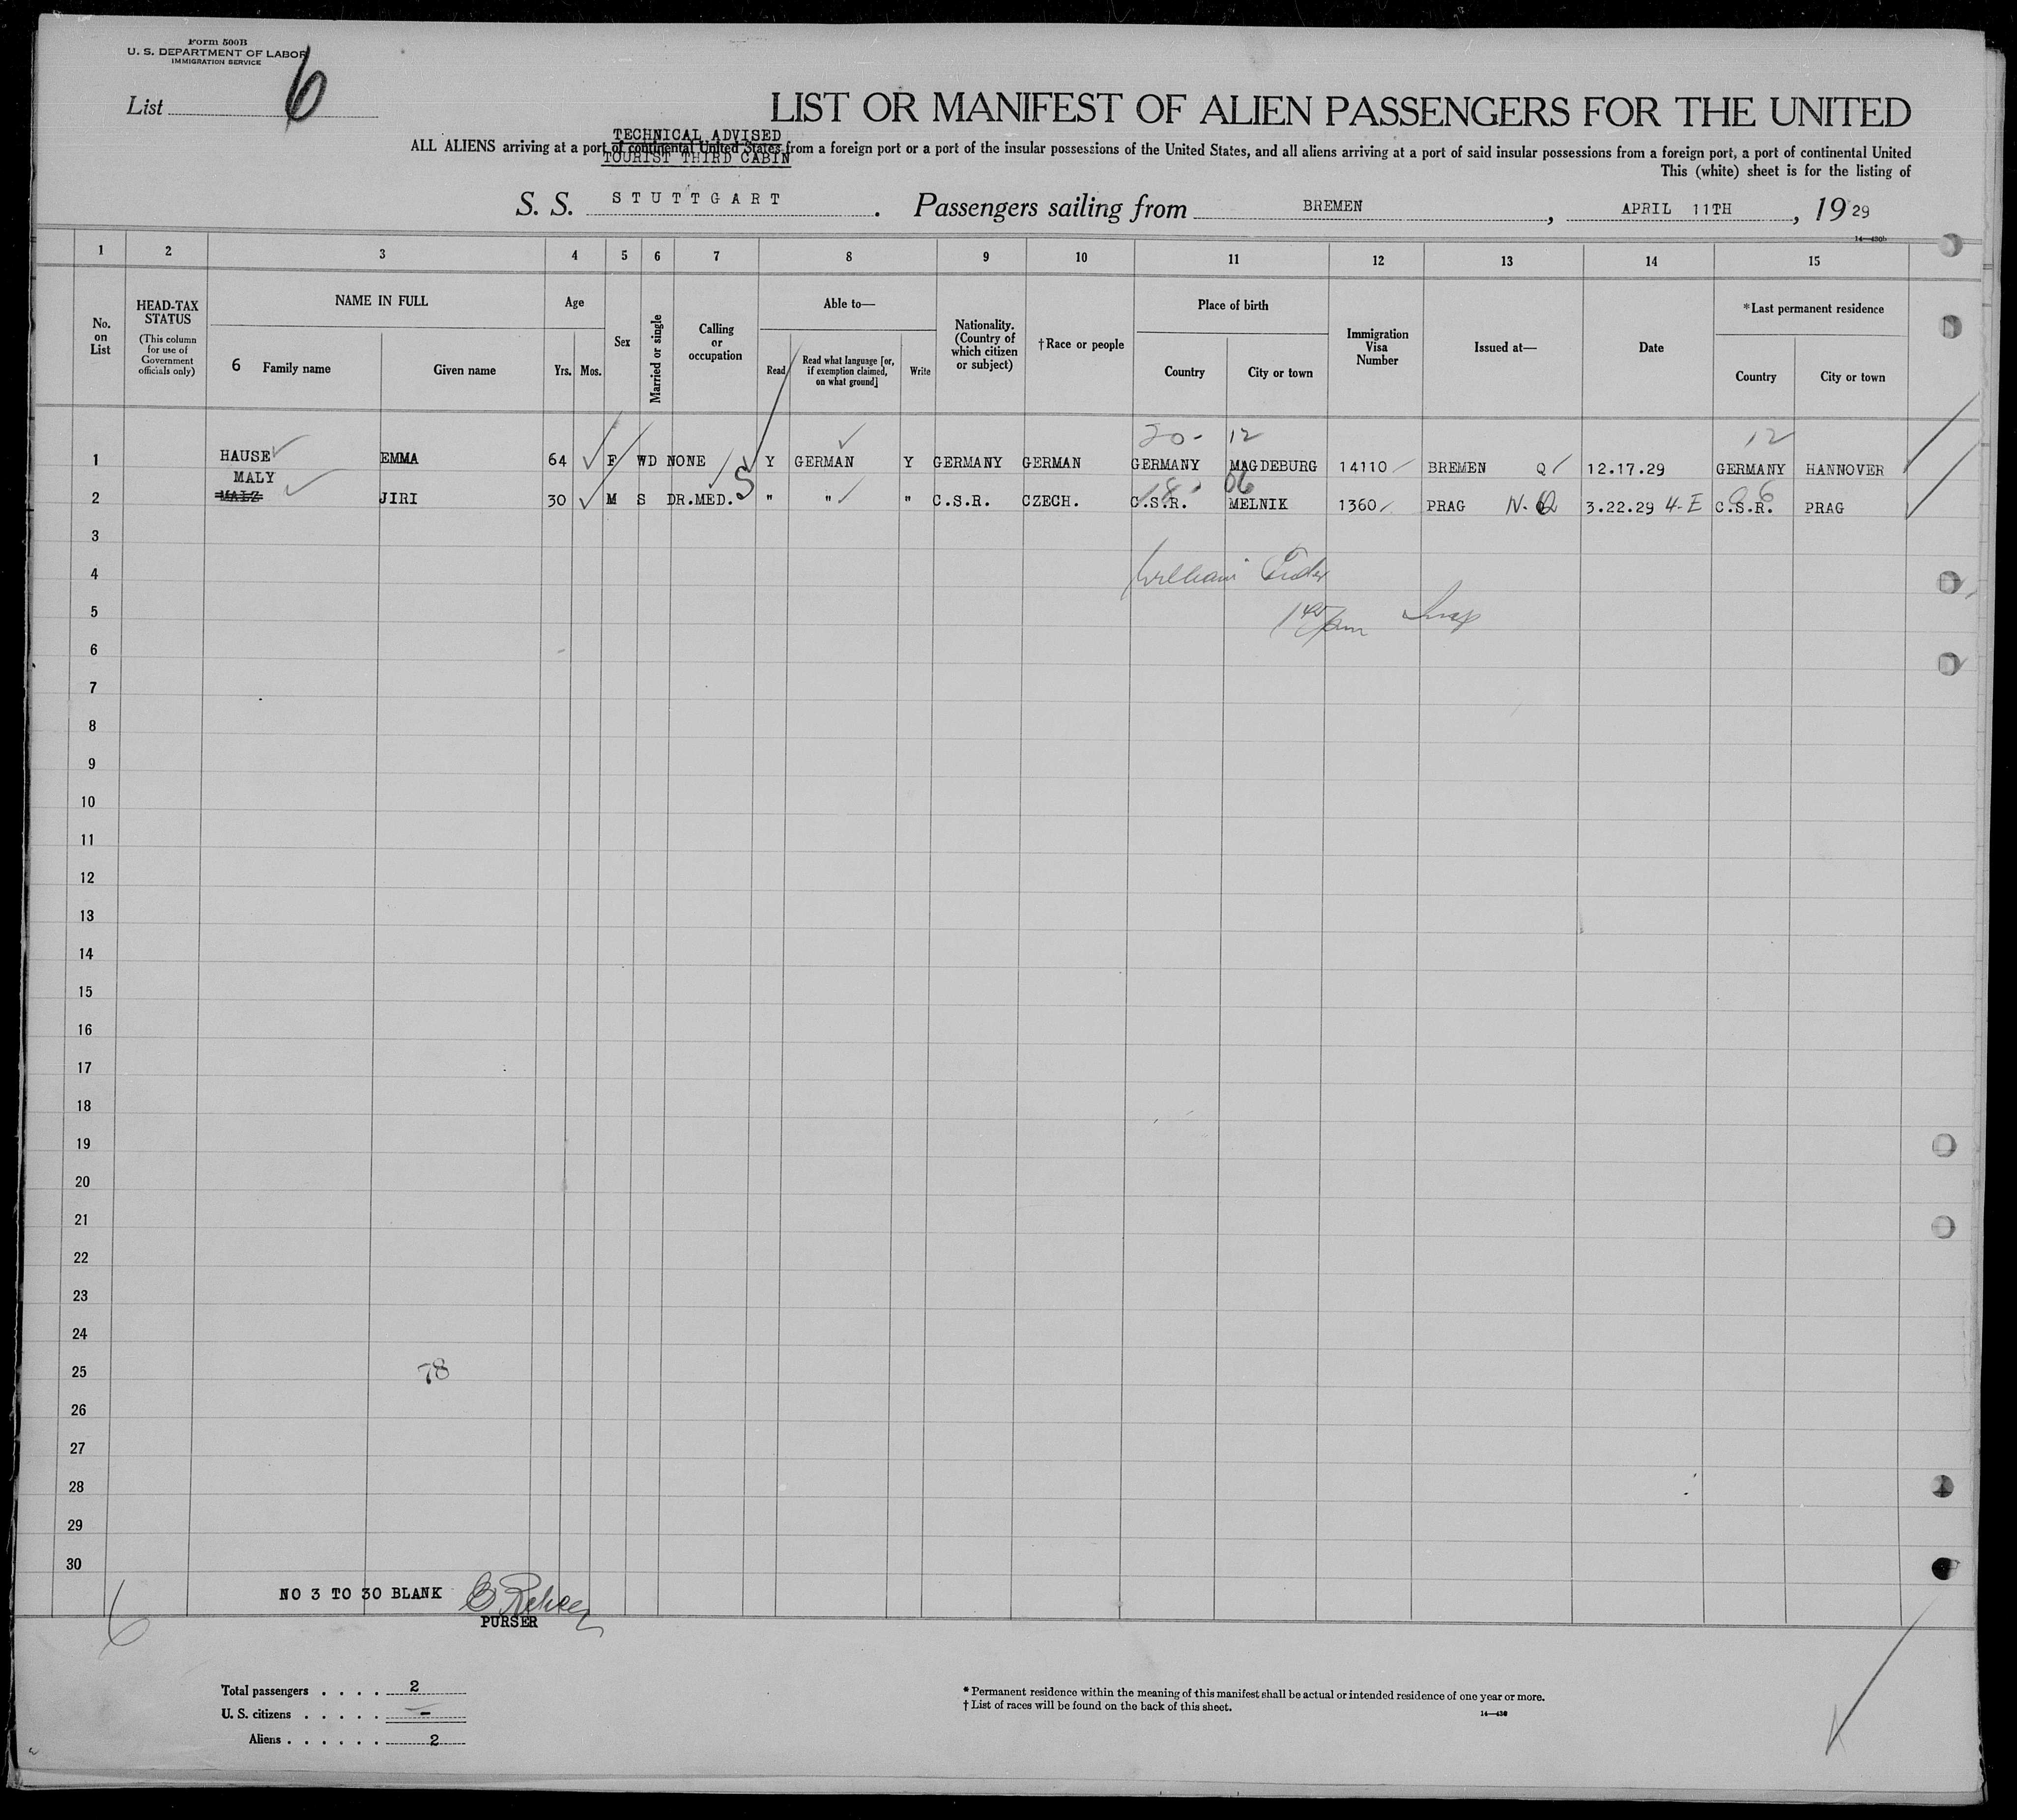 Form 500B
U. S. DEPARTMENT OF LABOR
IMMIGRATION SERVICE
List 6
LIST OR MANIFEST OF ALIEN PASSENGERS FOR THE UNITED
TECHNICAL ADVISED
ALL ALIENS arriving at a port of continental United States from a foreign port or a port of the insular possessions of the United States, and all aliens arriving at a port of said insular possessions from a foreign port, a port of continental United
TOURIST THIRD CABIN
This (white) sheet is for the listing of
S. S. STUTTGART. Passengers sailing from BREMEN, APRIL 11TH, 1929
14—430b
1 2 3 4 5 6 7 8 9 10 11 12 13 14 15
No. on List
HEAD-TAX STATUS
(This column for use of Government officials only)
NAME IN FULL
6 Family name
Given name
Age
Yrs. Mos.
Sex
Married or single
Calling or occupation
Able to—
Read
Read what language [or, if exemption claimed, on what ground]
Write
Nationality. (Country of which citizen or subject)
†Race or people
Place of birth
Country
City or town
Immigration Visa Number
Issued at—
Date
*Last permanent residence
Country
City or town
20- 12 12
1 HAUSE EMMA 64 F WD NONE Y GERMAN Y GERMANY GERMAN GERMANY MAGDEBURG 14110 BREMEN Q 12.17.29 GERMANY HANNOVER
MALY
18- 06 06
2 JIRI 30 M S DR.MED. S " " " C.S.R. CZECH. C.S.R. MELNIK 1360 PRAG N.Q 3.22.29 4-E C.S.R. PRAG
3
4 William
5 1 45 pm Insp
6
7
8
9
10
11
12
13
14
15
16
17
18
19
20
21
22
23
24
25 78
26
27
28
29
30
6 NO 3 TO 30 BLANK
PURSER
Total passengers . . . . 2
U. S. citizens . . . . . -
Aliens . . . . . . 2
* Permanent residence within the meaning of this manifest shall be actual or intended residence of one year or more.
† List of races will be found on the back of this sheet.
14—430